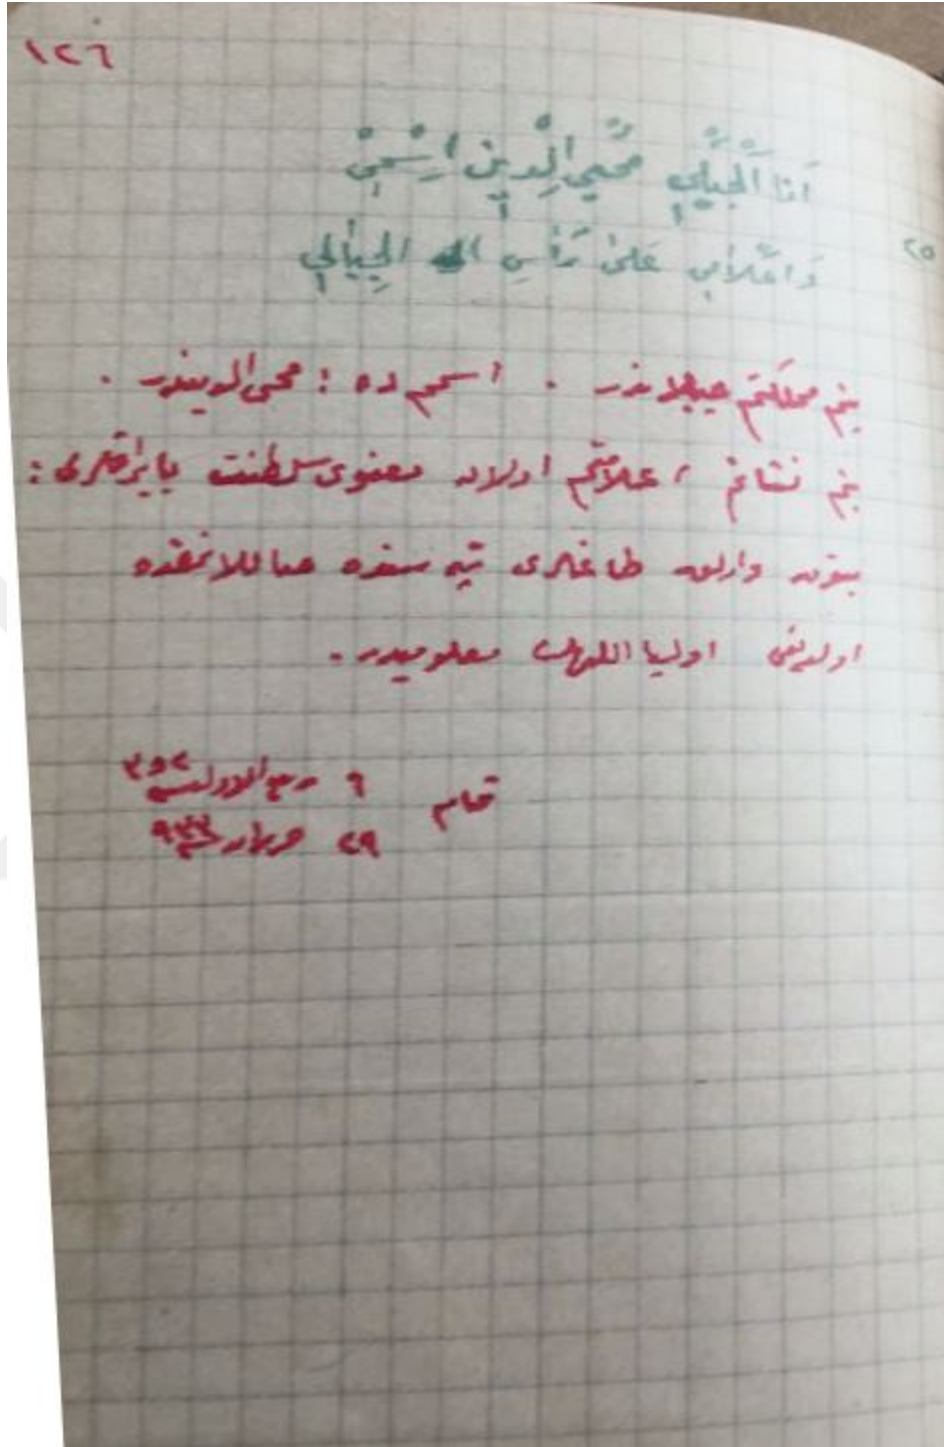 ١٢٦
اَنَا الْجِيلِي مُحْيِي الدِّينِ اِسْمِي
٢٥
وَاَعْلَامِي عَلَى رَأْسِ الْجِبَالِي
بنم مملكتم جيلاندر . اسمم ده : محى الديندر .
بنم نشانم ، علامتم اولان معنوى سلطنت بايراقلرى :
بتون وارلق طاغلرى تپه سنده صاللانمقده
اولديغى اوليا اللهك معلوميدر .
تمام ٦ ربيع الاول سنه ٣٥٢
٢٩ حزيران سنه ٩٣٣